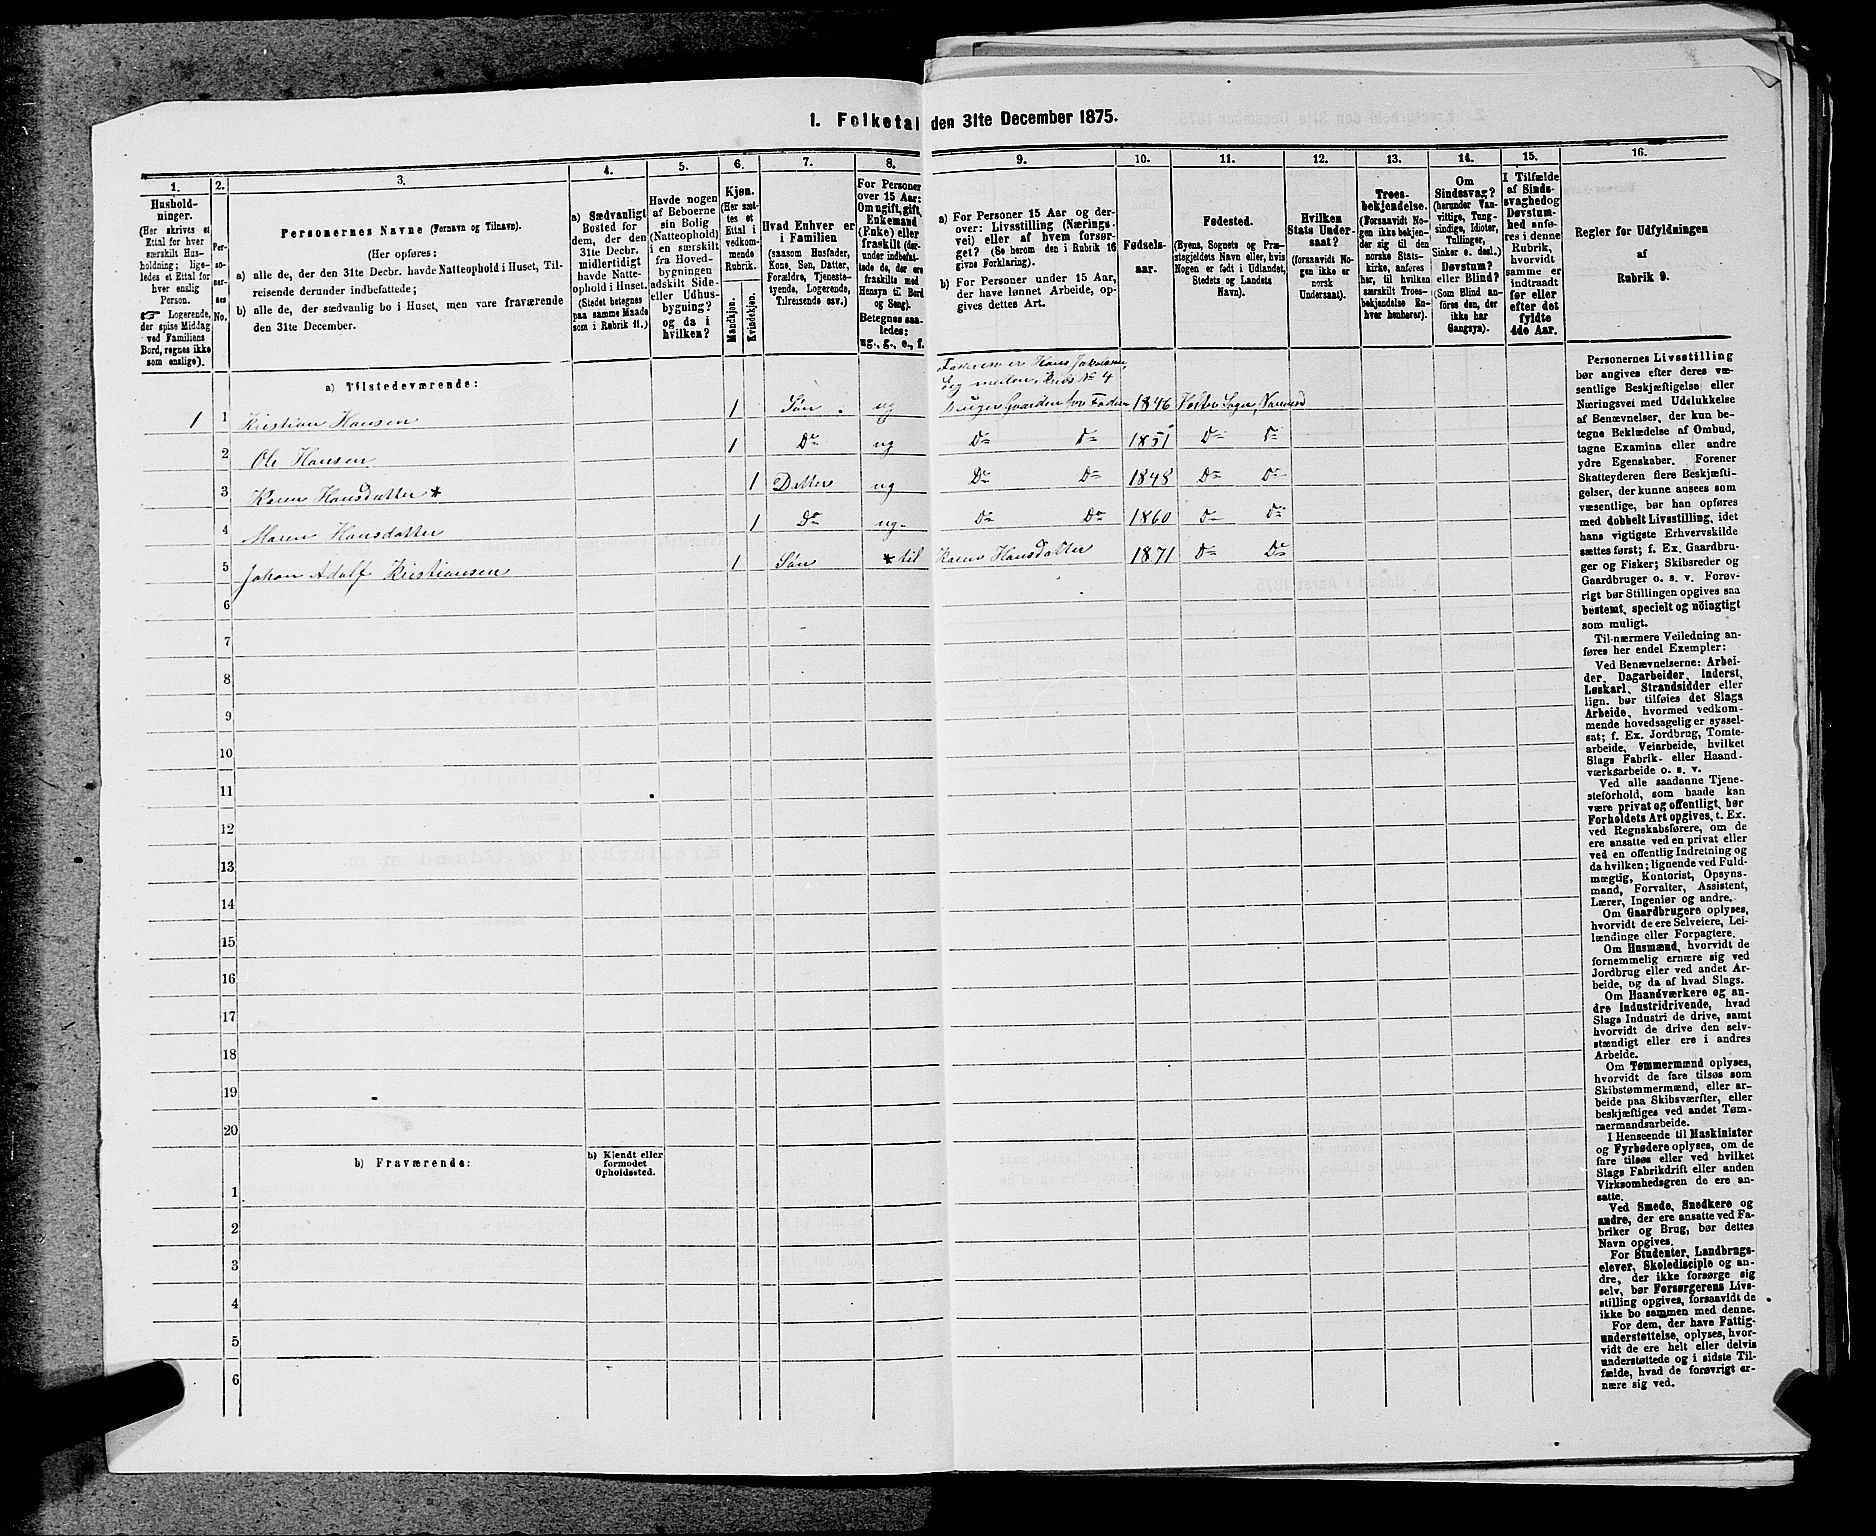 1. Folketal den 31te December 1875.
1.
2.
3.
4.
5.
6.
7.
8.
9.
10.
11.
12.
13.
14.
15.
16.
Hushold-
ninger.
(Her skrives et
Ettal for hver
særskilt Hus-
holdning; lige-
ledes et Ettal for
hver enslig
Person.
☞ Logerende,
der spise Middag
ved Familiens
Bord, regnes ikke
som enslige).
Per-
so-
ner-
nes
No.
Personernes Navne (Fornavn og Tilnavn).
(Her opføres:
a) alle de, der den 31te Decbr. havde Natteophold i Huset, Til-
reisende derunder indbefattede;
b) alle de, der sædvanlig bo i Huset, men vare fraværende
den 31te December.
a) Sædvanligt
Bosted for
dem, der den
31te Decbr.
midlertidigt
havde Natte-
ophold i Huset.
(Stedet betegnes
paa samme Maade
som i Rubrik 11.)
Havde nogen
af Beboerne
sin Bolig
(Natteophold)
i en særskilt
fra Hoved-
bygningen
adskilt Side-
eller Udhus-
bygning?
og da i
hvilken?
Kjøn.
(Her sæt-
tes et
Ettal i
vedkom-
mende
Rubrik.
Mandkjøn.
Kvindekjøn.
Hvad Enhver er
i Familien
(saasom Husfader,
Kone, Søn, Datter,
Forældre, Tjeneste-
tyende, Logerende,
Tilreisende osv.)
For Personer
over 15 Aar:
Om ugift, gift,
Enkemand
(Enke) eller
fraskilt (der-
under indbefat-
tede de, der ere
fraskilte med
Hensyn til Bord
og Seng).
Betegnes saa-
ledes:
ug., g., e., f.
a) For Personer 15 Aar og der-
over: Livsstilling (Nærings-
vei) eller af hvem forsør-
get? (Se herom den i Rubrik 16
givne Forklaring).
b) For Personer under 15 Aar,
der have lønnet Arbeide, op-
gives dettes Art.
Fødsels-
aar.
Fødested.
(Byens, Sognets og Præ-
stegjeldets Navn eller, hvis
Nogen er født i Udlandet,
Stedets og Landets
Navn).
Hvilken
Stats Under-
saat?
(forsaavidt No-
gen ikke er
norsk
Undersaat).
Troes-
bekjendelse.
(Forsaavidt No-
gen ikke bekjen-
der sig til den
norske Stats-
kirke, anføres
her, til hvilken
særskilt Troes-
bekjendelse En-
hver henhører).
Om
Sindssvag?
(herunder Van-
vittige, Tung-
sindige, Idioter,
Tullinger,
Sinker o. desl.)
Døvstum?
eller Blind?
(Som Blind an-
føres den, der
ikke har
Gangsyn).
I Tilfælde
af Sinds-
svaghed og
Døvstum-
hed anfø-
res i denne
Rubrik,
hvorvidt
samme er
indtraadt
før eller
efter det
fyldte
4de Aar.
Regler for Udfyldningen
af
Rubrik 9.
a) Tilstedeværende:
Faderen er Hans
No 4
1 1 Kristian Hansen 1 Søn. ug bruger Gaarden for Faderen 1846
2 Ole Hansen 1 Do ug Do Do 1851 Do Do
3 Karen Hansdatter * 1 Datter ug Do Do 1848 Do Do
4 Maren Hansdatter 1 Do ug. Do Do 1860 Do Do
5 Johan Adolf Kristiansen 1 Søn * til Karen Hansdatter 1871 Do Do
6
7
8
9
10
11
12
13
14
15
16
17
18
19
20
b) Fraværende:
b) Kjendt eller
formodet
Opholdssted.
1
2
3
4
5
6
Personernes Livsstilling
bør angives efter deres væ-
sentlige Beskjæftigelse eller
Næringsvei med Udelukkelse
af Benævnelser, der kun be-
tegne Beklædelse af Ombud,
tagne Examina eller andre
ydre Egenskaber. Forener
Skatteyderen flere Beskjæfti-
gelser, der kunne ansees som
væsentlige, bør han opføres
med dobbelt Livsstilling, idet
hans vigtigste Erhvervskilde
sættes først; f. Ex. Gaardbru-
ger og Fisker; Skibsreder og
Gaardbruger o. s. v. Forøv-
rigt bør Stillingen opgives saa
bestemt, specielt og nöiagtigt
som muligt.
Til nærmere Veiledning an-
føres her endel Exempler:
Ved Benævnelserne: Arbei-
der, Dagarbeider, Inderst,
Løskarl, Strandsidder eller
lign. bør tilføies det Slags
Arbeide, hvormed vedkom-
mende hovedsagelig er syssel-
sat; f. Ex. Jordbrug, Tomte-
arbeide, Veiarbeide, hvilket
Slags Fabrik- eller Haand-
værksarbeide o. s. v.
Ved alle saadanne Tjene-
steforhold, som baade kan
være privat og offentligt, bør
Forholdets Art opgives, t. Ex.
ved Regnskabsførere, om de
ere ansatte ved en privat eller
ved en offentlig Indretning og
da hvilken; lignende ved Fuld-
mægtig, Kontorist, Opsyns-
mand, Forvalter, Assistent,
Lærer, Ingeniør og andre.
Om Gaardbrugere oplyses,
hvorvidt de ere Selveiere, Lei-
lændinge eller Forpagtere.
Om Husmænd, hvorvidt de
fornemmelig ernære sig ved
Jordbrug eller ved andet Ar-
beide, og da af hvad Slags.
Om Haandværkere og an-
dre Industridrivende, hvad
Slags Industri de drive, samt
hvorvidt de drive den selv-
stændigt eller ere i andres
Arbeide.
Om Tømmermænd oplyses,
hvorvidt de fare tilsøs som
Skibstømmermænd, eller ar-
beide paa Skibsværfter, eller
beskjæftiges ved andet Tøm-
mermandsarbeide.
I Henseende til Maskinister
og Fyrbødere oplyses, om de
fare tilsøs eller ved hvilket
Slags Fabrikdrift eller anden
Virksomhedsgren de ere an-
satte.
Ved Smede, Snedkere og
andre, der ere ansatte ved Fa-
briker og Brug, bør dettes
Navn opgives.
For Studenter, Landbrugs-
elever, Skoledisciple og an-
dre, der ikke forsørge sig
selv, bør Forsørgerens Livs-
stilling opgives, forsaavidt de
ikke bo sammen med denne.
For dem, der have Fattig-
understøttelse, oplyses, hvor-
vidt de ere helt eller delvis
understøttede og i sidste Til-
fælde, hvad de forøvrigt er-
nære sig ved.